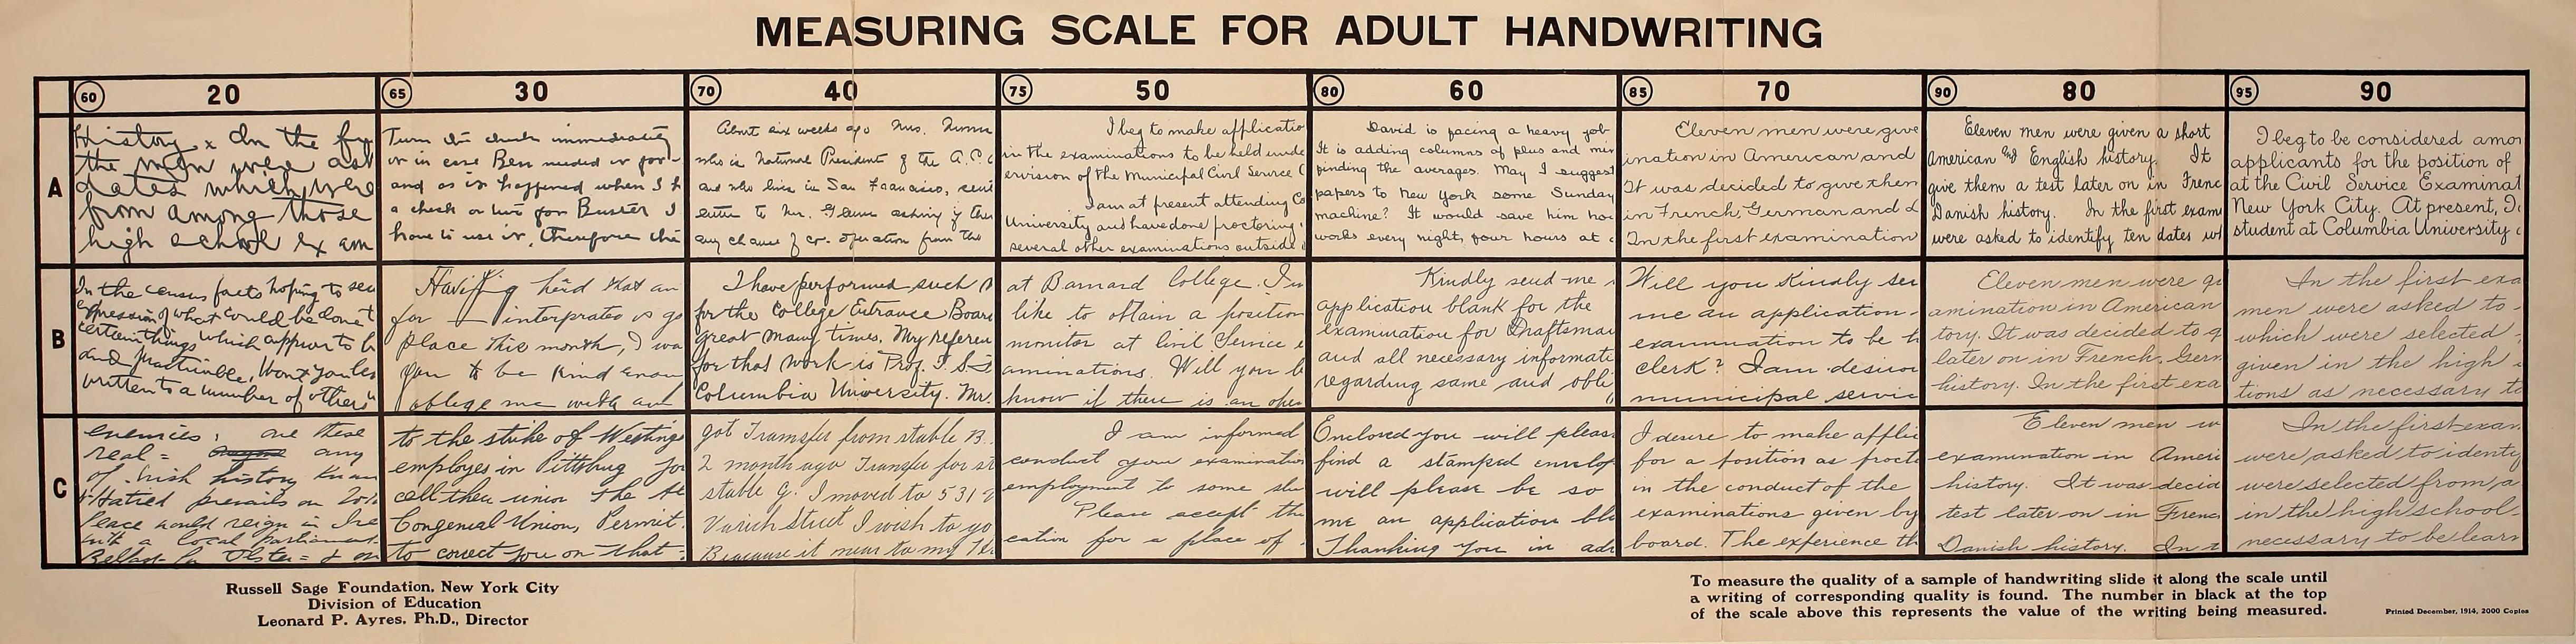 MEASURING SCALE FOR ADULT HANDWRITING
60 20
65 30
70 40
75 50
80 60
85 70
90 80
95 90
A
History x In the fi
the men were ask
dates which were
from among those
high school ex am
Turn it check immediately
or in case Ben needed it for-
and as it happened when I h
a check or two for Buster I
have to use it, therefore the
About six weeks ago Mrs.
who is National President of the A.C
and who lives in San Francisco, sent
letter to Mr. asking if ther
any chance of co-operation from the
I beg to make applicatio
in the examinations to be held unde
ervision of the Municipal Civil Service C
I am at present attending Co
University and have done proctoring
several other examinations outside
David is facing a heavy job
It is adding columns of plus and min
finding the averages. May I suggest
papers to New York some Sunday
machine? It would save him hou
works every night, four hours at a
Eleven men were give
ination in American and
It was decided to give them
in French, German and D
In the first examination
Eleven men were given a short
American and English history. It
give them a test later on in Frenc
Danish history. In the first exam
were asked to identify ten dates wh
I beg to be considered amon
applicants for the position of
at the Civil Service Examinat
New York City. At present, I
student at Columbia University
B
In the census facts hoping to sec
expression of what could be done t
certain things which appear to b
and practicable. Won't you let
written to a number of others
Having heard that an
for interpreter is go
place this month, I wo
you to be kind enou
oblige me with an
I have performed such
for the College Entrance Boar
great many times. My referen
for that work is Prof. T. S-
Columbia University. Mr.
at Barnard College. I
like to obtain a position
monitor at Civil Service e
aminations. Will you b
know if there is an open
Kindly send me
application blank for the
examination for Draftsman
and all necessary informati
regarding same and obli
Will you kindly sen
me an application-
examination to be h
clerk? I am desirou
municipal servic
Eleven men were gi
amination in American
tory. It was decided to g
later on in French, Germ
history. In the first exa
In the first exa
men were asked to
which were selected
given in the high
tions as necessary to
C
enemies, are these
real = any
of Irish history know
Hatred prevails on
Peace would reign in Ire
with a local parliament
Belfast Ulster
to the strike of Westing
employes in Pittsburg you
call their union the
Congenial Union, Permit
to correct you on that
got Transfer from stable B.
2 month ago Transfer for st
stable G. I moved to 531
Varick Street I wish to go
Because it near to my
I am informed
conduct your examination
employment to some
Please accept the
cation for a place of
Enclosed you will please
find a stamped envelop
will please be so
me an application bla
Thanking you in adv
I desire to make appli
for a position as proct
in the conduct of the
examinations given by
board. The experience th
Eleven men w
examination in Ameri
history. It was decid
test later on in French
Danish history. In t
In the first exam
were asked to identify
were selected from a
in the high school
necessary to be learn
Russell Sage Foundation, New York City
Division of Education
Leonard P. Ayres, Ph.D., Director
To measure the quality of a sample of handwriting slide it along the scale until
a writing of corresponding quality is found. The number in black at the top
of the scale above this represents the value of the writing being measured.
Printed December, 1914, 2000 Copies